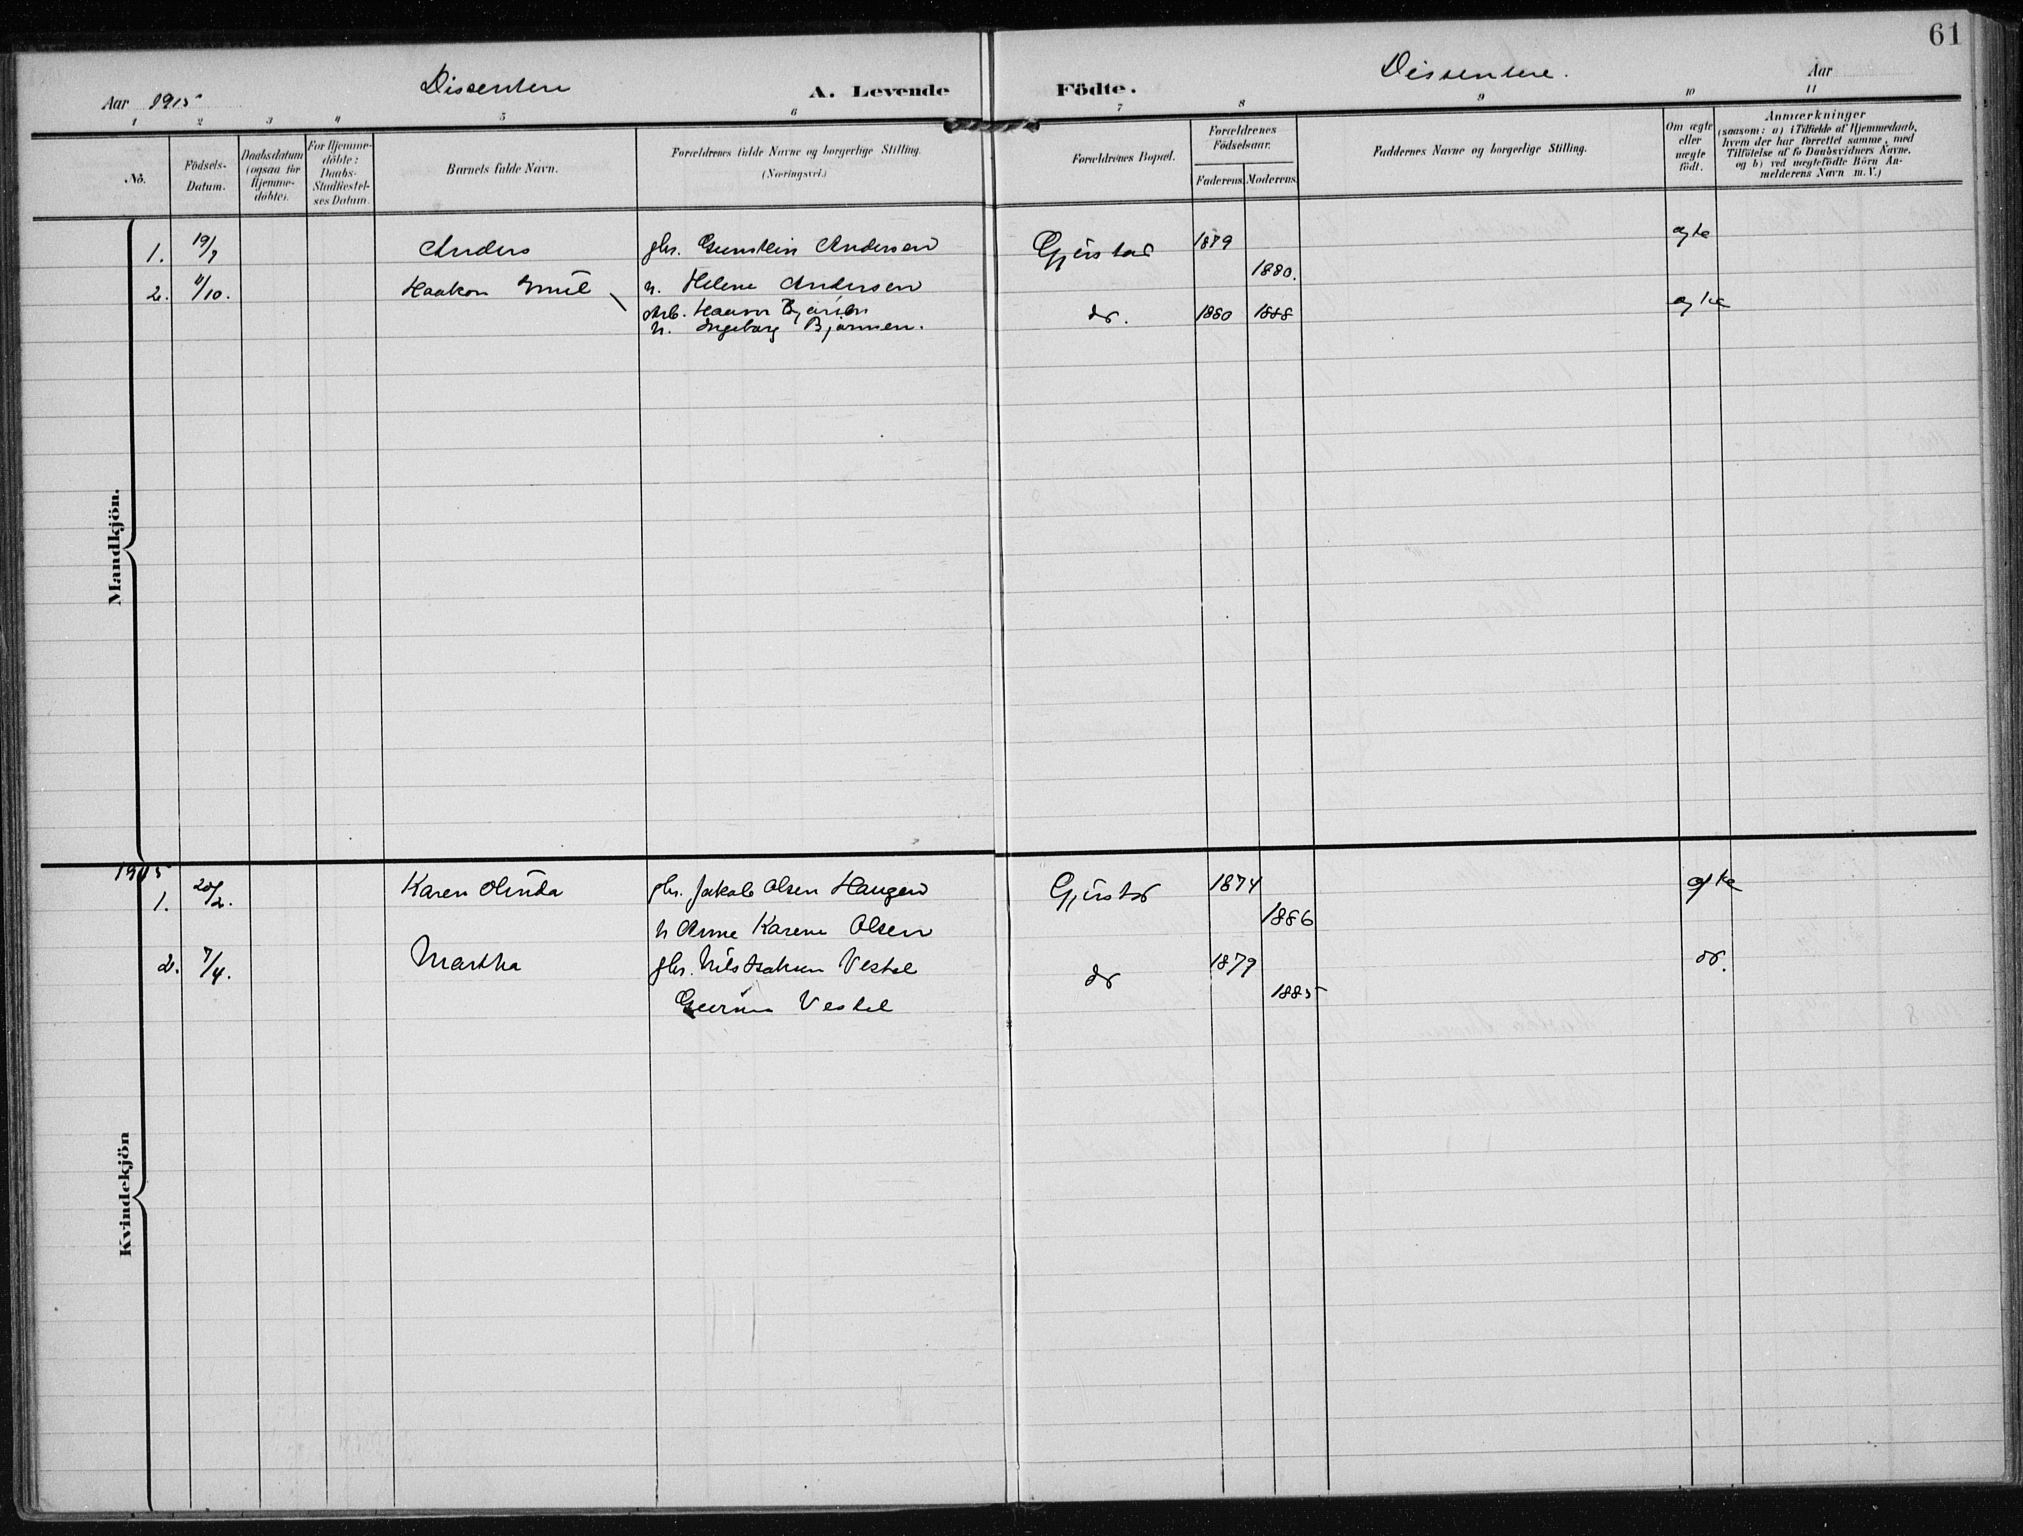 61
Dissentere
Dissentere.
Aar 1915
A. Levende
Födte.
Aar
1 2 3 4 5 6 7 8 9 10 11
No.
Födsels-
Datum.
Daabsdatum
(ogsaa for
Hjemme-
döbte).
For Hjemme-
döbte:
Daabs-
Stadfæstel-
ses Datum.
Barnets fulde Navn.
Forældrenes fulde Navne og borgerlige Stilling.
(Næringsvei.)
Forældrenes Bopæl.
Forældrenes
Födselsaar.
Faderens. Moderens.
Faddernes Navne og borgerlige Stilling.
Om ægte
eller
uægte
födt.
Anmærkninger
(saasom: a) i Tilfælde af Hjemmedaab,
hvem der har forrettet samme, med
Tilföielse af to Daabsvidners Navne,
og b) ved uægtefödte Börn An-
melderens Navn m. V.)
Mandkjön.
1. 19/9 Anders gbr. Gunstein Andersen Gjerstad 1879 ægte
2. 11/10. Haakon Emil h. Helene Andersen 1880.
Arb. Haavor Bjørnen do. 1880 1888 ægte
h. Ingeborg Bjørnen.
1915
1. 20/2. Karen Olinda gbr. Jakob Olsen Haugen Gjerstad 1874 ægte
h Anne Karene Olsen 1886
2. 7/4. Martha gbr. Nils Isaksen Vestøl do 1879 do.
Vestøl 1885
Kvindekjön